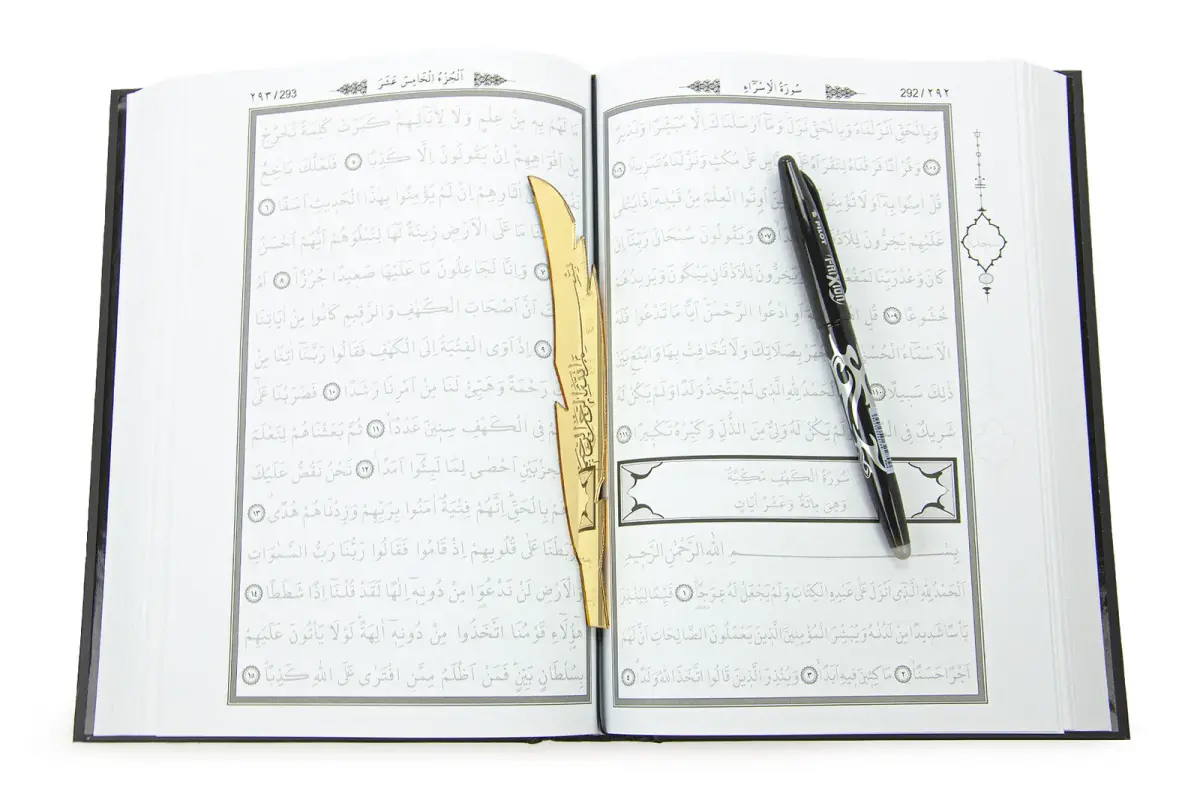 سُورَةُ الْاِسْرَٓاءِ
292/٢٩٢
وَبِالْحَقِّ اَنْزَلْنَاهُ وَبِالْحَقِّ نَزَلَ وَمَٓا اَرْسَلْنَاكَ اِلَّا مُبَشِّرًا وَنَذِيرًا
١٠٥ وَقُرْاٰنًا فَرَقْنَاهُ لِتَقْرَاَهُ عَلَى عَلٰى مُكْثٍ وَنَزَّلْنَاهُ تَنْزِيلًا ١٠٦
قُلْ اٰمِنُوا بِهٖٓ اَوْ لَا تُؤْمِنُوا اُوتُوا الْعِلْمَ مِنْ قَبْلِهٖٓ اِذَا يُتْلٰى
عَلَيْهِمْ يَخِرُّونَ لِلْاَذْقَانِ ١٠٧ وَيَقُولُونَ سُبْحَانَ رَبِّنَٓا اِنْ
كَانَ وَعْدُ رَبِّنَا لَمَفْعُولًا لِلْاَذْقَانِ يَبْكُونَ وَيَزِيدُهُمْ
خُشُوعًا ١٠٩ قُلِ ادْعُوا اَوِ ادْعُوا الرَّحْمٰنَ اَيًّا مَا تَدْعُوا فَلَهُ
الْاَسْمَٓاءُ الْحُسْنٰى بِصَلَاتِكَ وَلَا تُخَافِتْ بِهَا وَابْتَغِ بَيْنَ
ذٰلِكَ سَبِيلًا ١١٠ الْحَمْدُ لِلّٰهِ الَّذٖي لَمْ يَتَّخِذْ وَلَدًا وَلَمْ يَكُنْ لَهُ
شَرِيكٌ فِي يَكُنْ لَهُ وَلِيٌّ مِنَ الذُّلِّ وَكَبِّرْهُ تَكْبِيرًا ١١١
سُورَةُ الْكَهْفِ مَكِّيَّةٌ
وَهِيَ مِائَةٌ وَعَشْرُ اٰيَاتٍ
بِسْمِ اللّٰهِ الرَّحْمٰنِ الرَّحِيمِ
اَلْحَمْدُ لِلّٰهِ الَّذٖٓي اَنْزَلَ عَلٰى عَبْدِهِ الْكِتَابَ وَلَمْ يَجْعَلْ لَهُ عِوَجًا ١ قَيِّمًا لِيُنْذِرَ
بَاْسًا شَدِيدًا مِنْ لَدُنْهُ وَيُبَشِّرَ الْمُؤْمِنِينَ الَّذِينَ يَعْمَلُونَ الصَّالِحَاتِ اَنَّ لَهُمْ
اَجْرًا حَسَنًا ٢ مَاكِثِينَ فِيهِ اَبَدًا ٣ وَيُنْذِرَ الَّذِينَ قَالُوا اتَّخَذَ اللّٰهُ وَلَدًا ٤
PILOT
FRIXION
اَلْجُزْءُ الْخَامِسَ عَشَرَ
٢٩٣/293
مَا لَهُمْ بِهٖ مِنْ عِلْمٍ وَلَا لِاٰبَٓائِهِمْ كَبُرَتْ كَلِمَةً تَخْرُجُ
مِنْ اَفْوَاهِهِمْ اِنْ يَقُولُونَ اِلَّا كَذِبًا ٥ فَلَعَلَّكَ بَاخِعٌ
اٰثَارِهِمْ اِنْ لَمْ يُؤْمِنُوا بِهٰذَا الْحَدِيثِ اَسَفًا ٦
مَا عَلَى الْاَرْضِ زِينَةً لَهَا لِنَبْلُوَهُمْ اَيُّهُمْ اَحْسَنُ
٧ وَاِنَّا لَجَاعِلُونَ مَا عَلَيْهَا صَعِيدًا جُرُزًا ٨ اَمْ
اَنَّ اَصْحَابَ الْكَهْفِ وَالرَّقِيمِ كَانُوا مِنْ اٰيَاتِنَا
٩ اِذْ اَوَى الْفِتْيَةُ اِلَى الْكَهْفِ فَقَالُوا رَبَّنَٓا اٰتِنَا مِنْ
رَحْمَةً وَهَيِّئْ لَنَا مِنْ اَمْرِنَا رَشَدًا ١٠ فَضَرَبْنَا عَلٰٓى
فِي الْكَهْفِ سِنِينَ عَدَدًا ١١ ثُمَّ بَعَثْنَاهُمْ لِنَعْلَمَ
الْحِزْبَيْنِ اَحْصٰى لِمَا لَبِثُٓوا اَمَدًا ١٢ نَحْنُ نَقُصُّ عَلَيْكَ
بِالْحَقِّ اِنَّهُمْ فِتْيَةٌ اٰمَنُوا بِرَبِّهِمْ وَزِدْنَاهُمْ هُدًى ١٣
وَرَبَطْنَا عَلٰى قُلُوبِهِمْ اِذْ قَامُوا فَقَالُوا رَبُّنَا رَبُّ السَّمٰوَاتِ
وَالْاَرْضِ لَنْ نَدْعُوَا مِنْ دُونِهٖٓ اِلٰهًا لَقَدْ قُلْنَٓا اِذًا شَطَطًا ١٤
هٰٓؤُلَٓاءِ قَوْمُنَا اتَّخَذُوا مِنْ دُونِهٖٓ اٰلِهَةً لَوْلَا يَاْتُونَ عَلَيْهِمْ
بِسُلْطَانٍ بَيِّنٍ فَمَنْ اَظْلَمُ مِمَّنِ افْتَرٰى عَلَى اللّٰهِ كَذِبًا ١٥